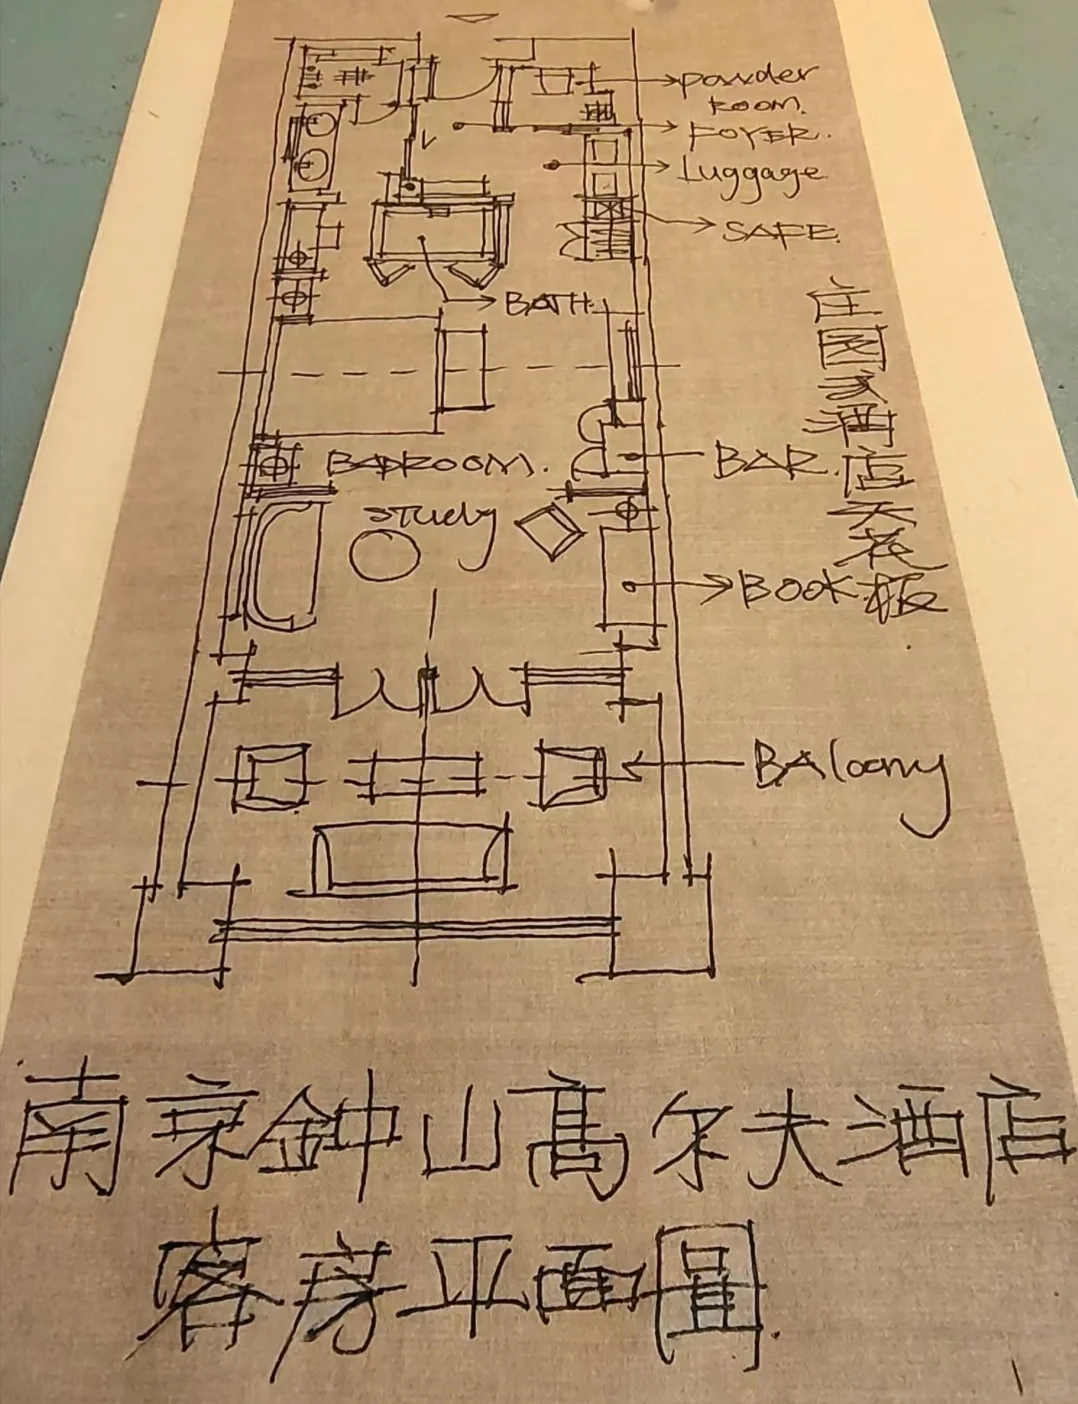 powder
ROOM.
FOYER.
Luggage
SAFE.
BATH.
BADROOM.
BAR.
study
BOOK
BAlcony
庄园式酒店天花板
南京钟山高尔夫酒店
客房平面圖.